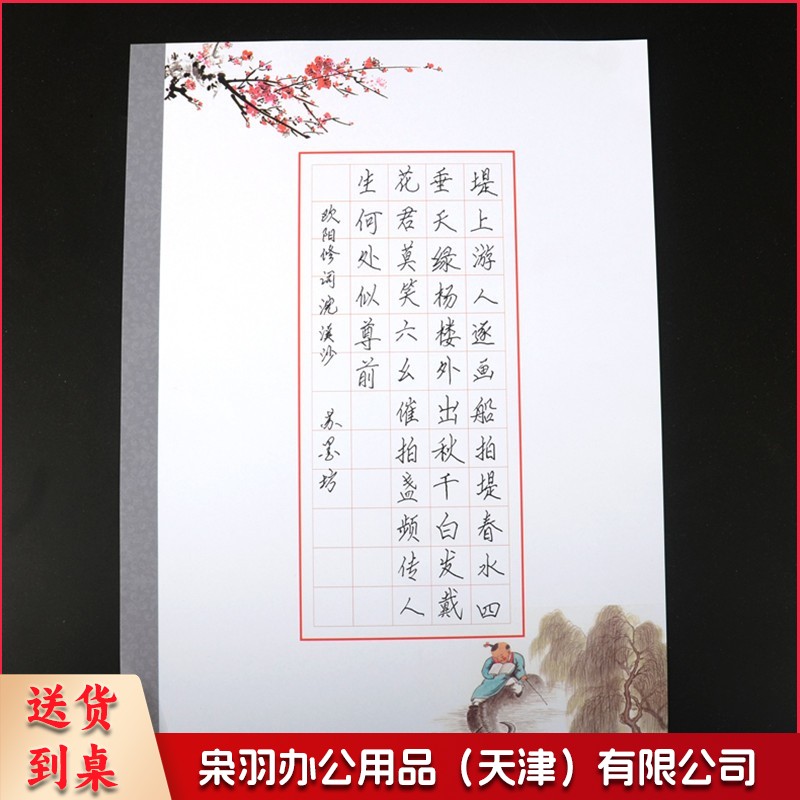 堤上游人逐画船拍堤春水四
垂天绿杨楼外出秋千白发戴
花君莫笑六幺催拍盏频传人
生何处似尊前
欧阳修词浣溪沙 苏墨坊
送货
到桌
枭羽办公用品（天津）有限公司